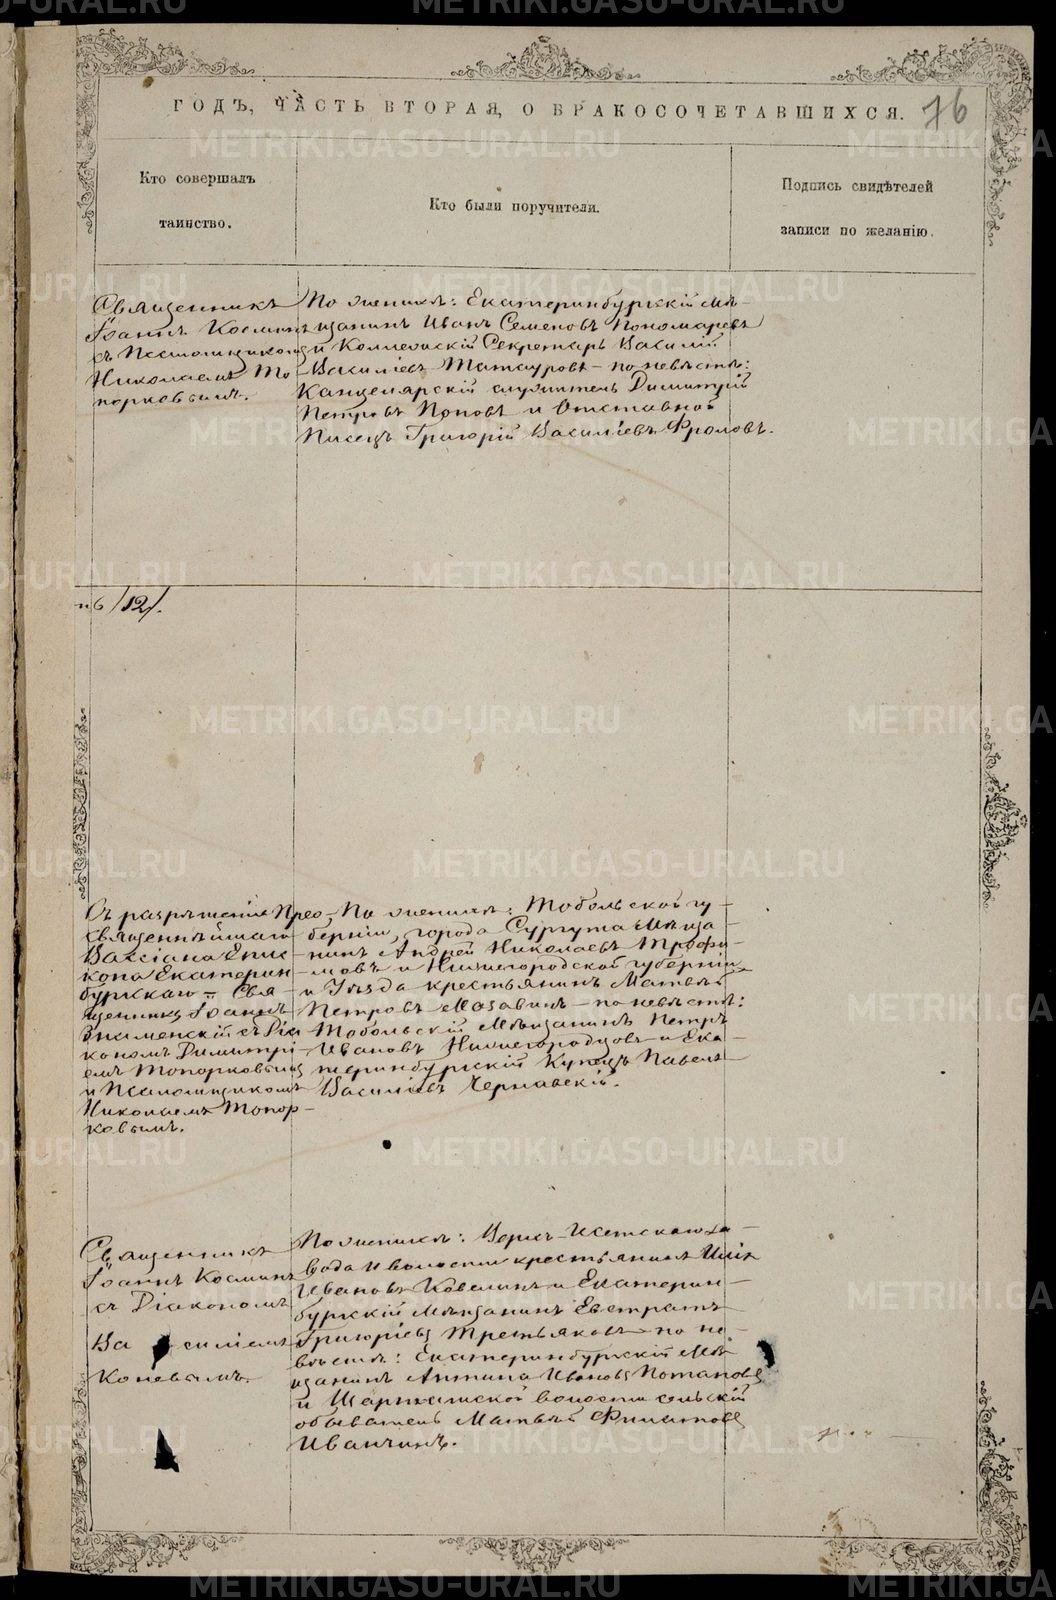 ГОДЪ, ЧАСТЬ ВТОРАЯ, О БРАКОСОЧЕТАВШИХСЯ.
76
Кто совершалъ
таинство.
Кто были поручители.
Подпись свидѣтелей
записи по желанію.
Священникъ
Іоаннъ Косминъ
съ Псаломщикомъ
Николаемъ То-
порковымъ.
По женихѣ: Екатеринбургскій мѣ-
щанинъ Иванъ Семеновъ Пономаревъ
и Коллежскій Секретарь Василій
Василіевъ Татауровъ – по невѣстѣ:
Канцелярскій служитель Димитрій
Петровъ Поповъ и Отставной
Писецъ Григорій Василіевъ Фроловъ.
/12/.
Съ разрѣшенія Прео-
священнѣйшаго
Вассіана Епис-
копа Екатерин-
бургскаго = Свя-
щенникъ Іоаннъ
Знаменскій съ Діа-
кономъ Димитрі-
емъ Топорковымъ
и Псаломщикомъ
Николаемъ Топор-
ковымъ.
По женихѣ: Тобольской гу-
берніи, города Сургута Мѣща-
нинъ Андрей Николаевъ Трофи-
мовъ и Нижегородской губерніи
и Уѣзда крестьянинъ Матвѣй
Петровъ Мазавинъ – по невѣстѣ:
Тобольскій Мѣщанинъ Петръ
Ивановъ Нижегородцовъ и Ека-
теринбургскій Купецъ Павелъ
Василіевъ Чернавскій.
Священникъ
Іоаннъ Косминъ
съ Діакономъ
Василіемъ
Коневымъ.
По женихѣ: Верх-Исетскаго за-
вода и волости крестьянинъ Илія
Ивановъ Ковелинъ и Екатерин-
бургскій Мѣщанинъ Евстратъ
Григоріевъ Третьяковъ – по не-
вѣстѣ: Екатеринбургскій Мѣ-
щанинъ Антипа Ивановъ Потаповъ
и Шарташской волости сельскій
обыватель Матвѣй Филатовъ
Иванчинъ.
METRIKI.GASO-URAL.RU